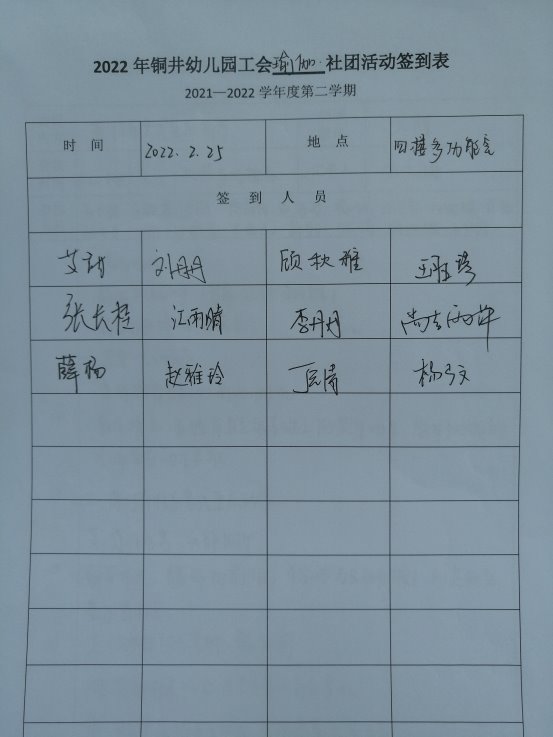 2022年铜井幼儿园工会瑜伽社团活动签到表
2021—2022学年度第二学期
时 间 2022.2.25 地 点 四楼多功能室
签 到 人 员
刘丹丹 顾秋雅
张长桂 江雨晴 李丹丹
薛杨 赵雅玲 杨弓文